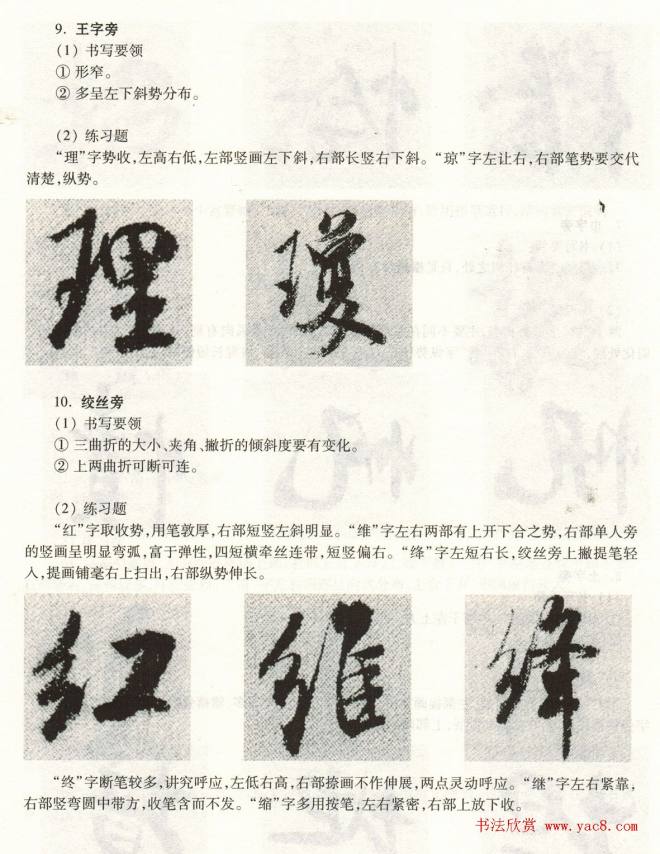 9. 王字旁
(1) 书写要领
① 形窄。
② 多呈左下斜势分布。
(2) 练习题
“理”字势收,左高右低,左部竖画左下斜,右部长竖右下斜。“琼”字左让右,右部笔势要交代
清楚,纵势。
理 瓊
10. 绞丝旁
(1) 书写要领
① 三曲折的大小、夹角、撇折的倾斜度要有变化。
② 上两曲折可断可连。
(2) 练习题
“红”字取收势,用笔敦厚,右部短竖左斜明显。“维”字左右两部有上开下合之势,右部单人旁
的竖画呈明显弯弧,富于弹性,四短横牵丝连带,短竖偏右。“绛”字左短右长,绞丝旁上撇提笔轻
入,提画铺毫右上扫出,右部纵势伸长。
红 維 絳
“终”字断笔较多,讲究呼应,左低右高,右部捺画不作伸展,两点灵动呼应。“继”字左右紧靠,
右部竖弯圆中带方,收笔含而不发。“缩”字多用按笔,左右紧密,右部上放下收。
书法欣赏 www.yac8.com